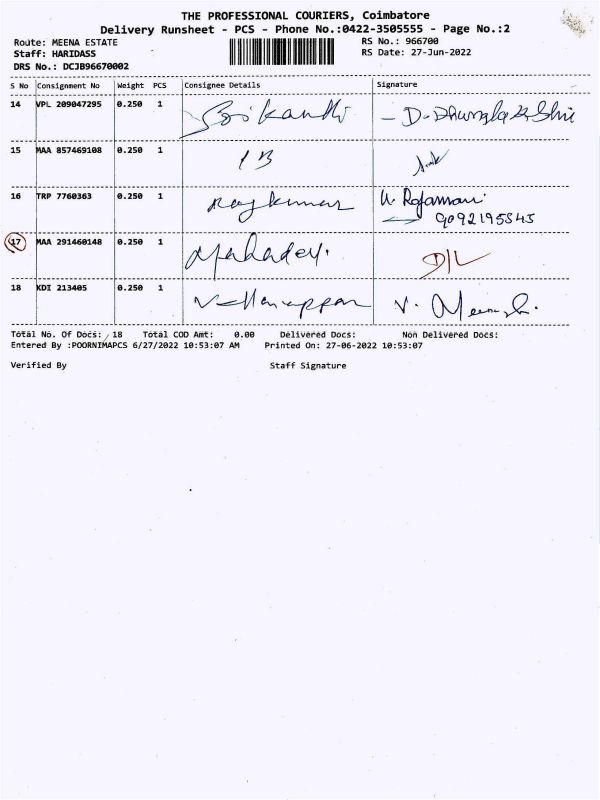 THE PROFESSIONAL COURIERS, Coimbatore
Delivery Runsheet - PCS - Phone No.:0422-3505555 - Page No.:2
Route: MEENA ESTATE
RS No.: 966700
Staff: HARIDASS
RS Date: 27-Jun-2022
DRS No.: DCJB96670002
S No Consignment No Weight PCS Consignee Details Signature
14 VPL 209047295 0.250 1
15 MAA 857469108 0.250 1 1 B
16 TRP 7760363 0.250 1 Rajkumar
9092195545
17 MAA 291460148 0.250 1 Mahadev. D/L
18 KDI 213405 0.250 1 Vellaiyappan V.
Total No. Of Docs: 18 Total COD Amt: 0.00 Delivered Docs: Non Delivered Docs:
Entered By :POORNIMAPCS 6/27/2022 10:53:07 AM Printed On: 27-06-2022 10:53:07
Verified By Staff Signature